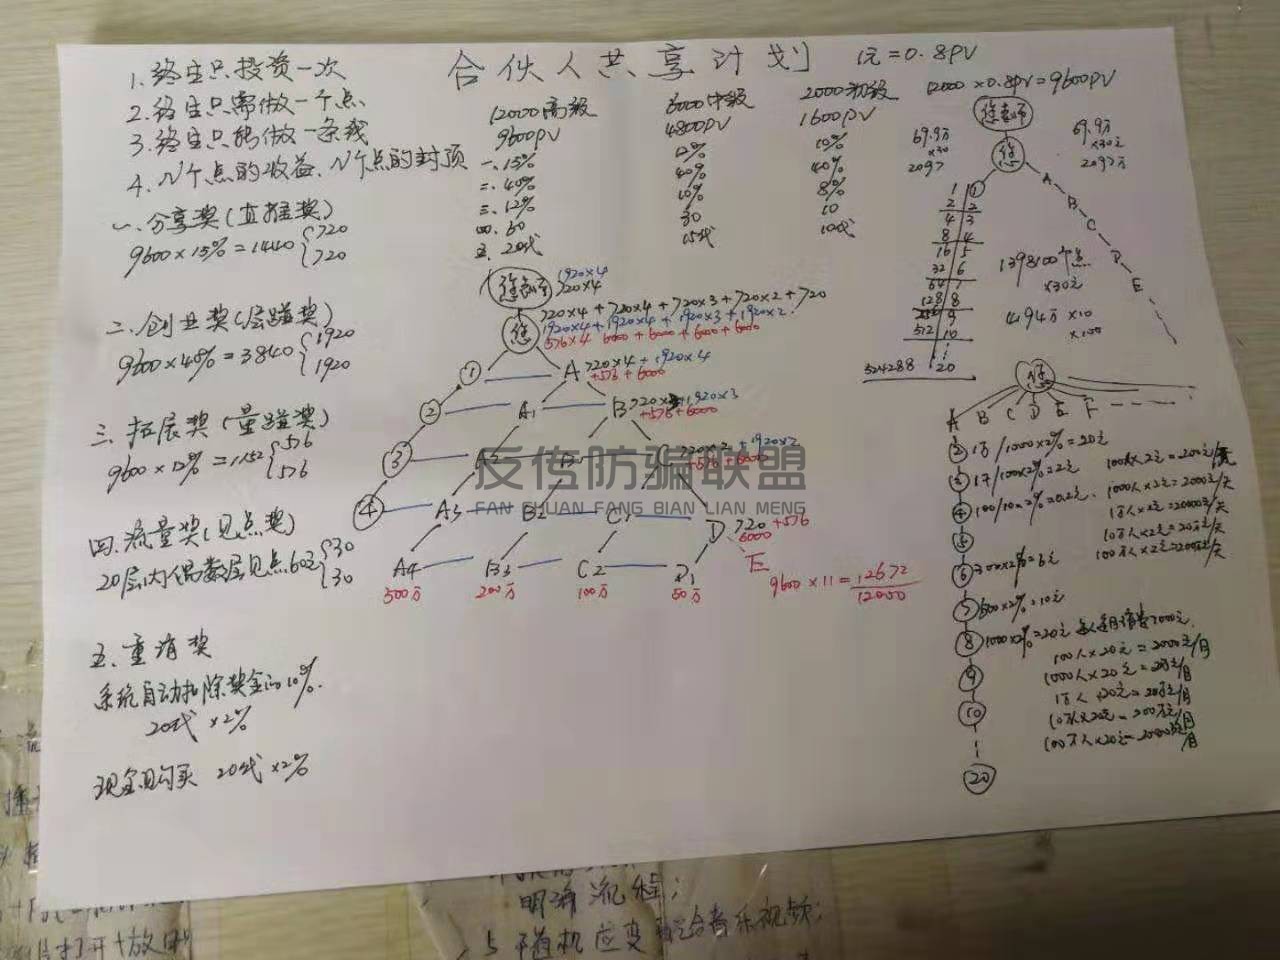 合伙人共享计划
1元=0.8PV
12000×0.8PV=9600PV
1、终生只投资一次
2、终生只需做一个点
3、终生只能做一条线
4、N个点的收益、N个点的封顶
12000高级 6000中级 2000初级
9600PV 4800PV 1600PV
一、15% 12% 10%
二、40% 40% 40%
三、12% 10% 8%
四、60 30 10
五、20代 15代 10代
一、分享奖(直推奖)
9600×15%=1440 720
720
二、创业奖(层碰奖)
9600×40%=3840 1920
1920
三、拓展奖(量碰奖)
9600×12%=1152 576
576
四、流量奖(见点奖)
20层内偶数层见点60元 30
30
五、重消奖
系统自动扣除奖金的10%.
20代×2%
现金购买 20代×2%
1920×4
720×4
720×4+720×4+720×3+720×2+720
1920×4+1920×4+1920×3+1920×2
576×4 6000+6000+6000+6000
您
① A 720×4+1920×4
+576+6000
② A1 B 1920×3
+576+6000
③ 720×2+1920×2
+576+6000
④ A3 B2 C1 D 720 +576
6000
A4 B3 C2 D1 E
500万 200万 100万 50万
9600×11=12672
12000
69.9万
×30
2097
您
69.9万
×30元
2097万
A
B
C
D
E
1 ①
2 2
4 3
8 4
16 5
32 6
64 7
128 8
9
512 10
524288 20
1398100个点
×30元
4194万×10
×100
您
A B C D E F
100人×2元=200元/天
1000人×2元=2000元/天
1万人×2元=20000元/天
10万人×2元=20万元/天
100万人×2元=200万元/天
④
⑥ 300×2%=6元
⑦
⑧ 1000×2%=20元
100人×20元=2000元/月
⑨ 1000人×20元=2万元/月
1万人×20元=20万元/月
⑩ 10万人×20元=200万元/月
100万人×20元=2000万元/月
⑳
反传防骗联盟
FAN CHUAN FANG BIAN LIAN MENG
明确流程;
5、随机应变